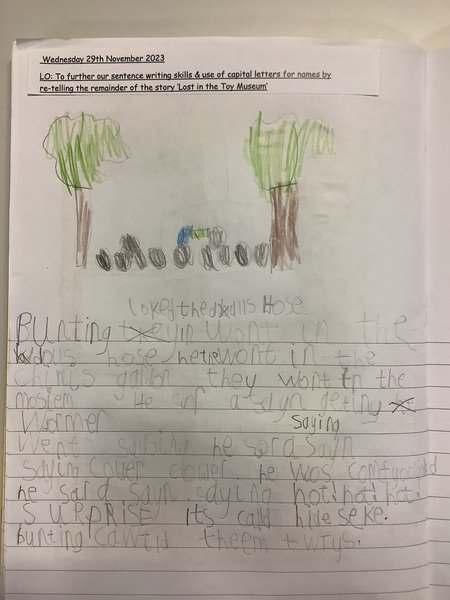 Wednesday 29th November 2023
LO: To further our sentence writing skills & use of capital letters for names by
re-telling the remainder of the story 'Lost in the Toy Museum'
loked the dalls Hose.
Bunting wont in the
dolls hose he wont in the
they wont in the
He a sayn geting
Wormer saying
Went he sard sayn
couer couer. he was
he sard sayn. sayting hot! hot! hot!
SURPRISE its calld hide seke.
bunting theem